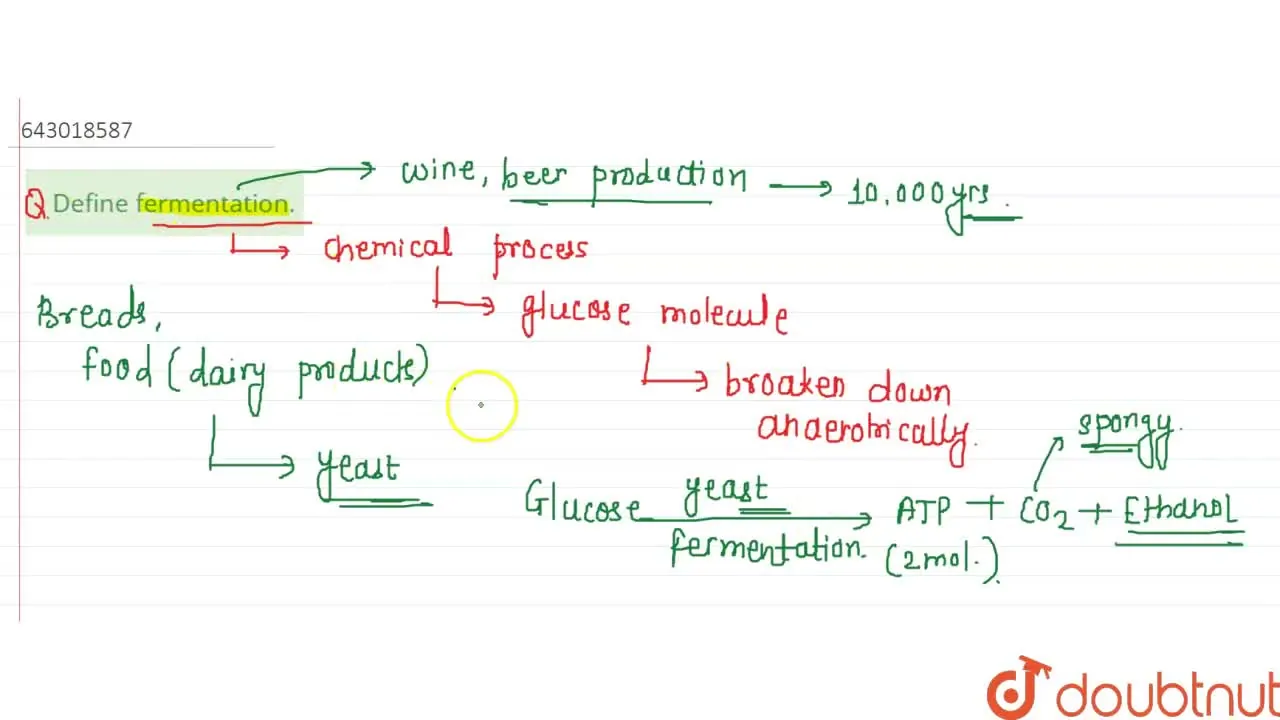 643018587
wine, beer production → 10,000 yrs.
Q. Define fermentation.
chemical process
Breads,
glucose molecule
food (dairy products)
broaken down
anaerobically.
spongy.
yeast
Glucose yeast → ATP + CO2 + Ethanol
fermentation. (2 mol.)
doubtnut